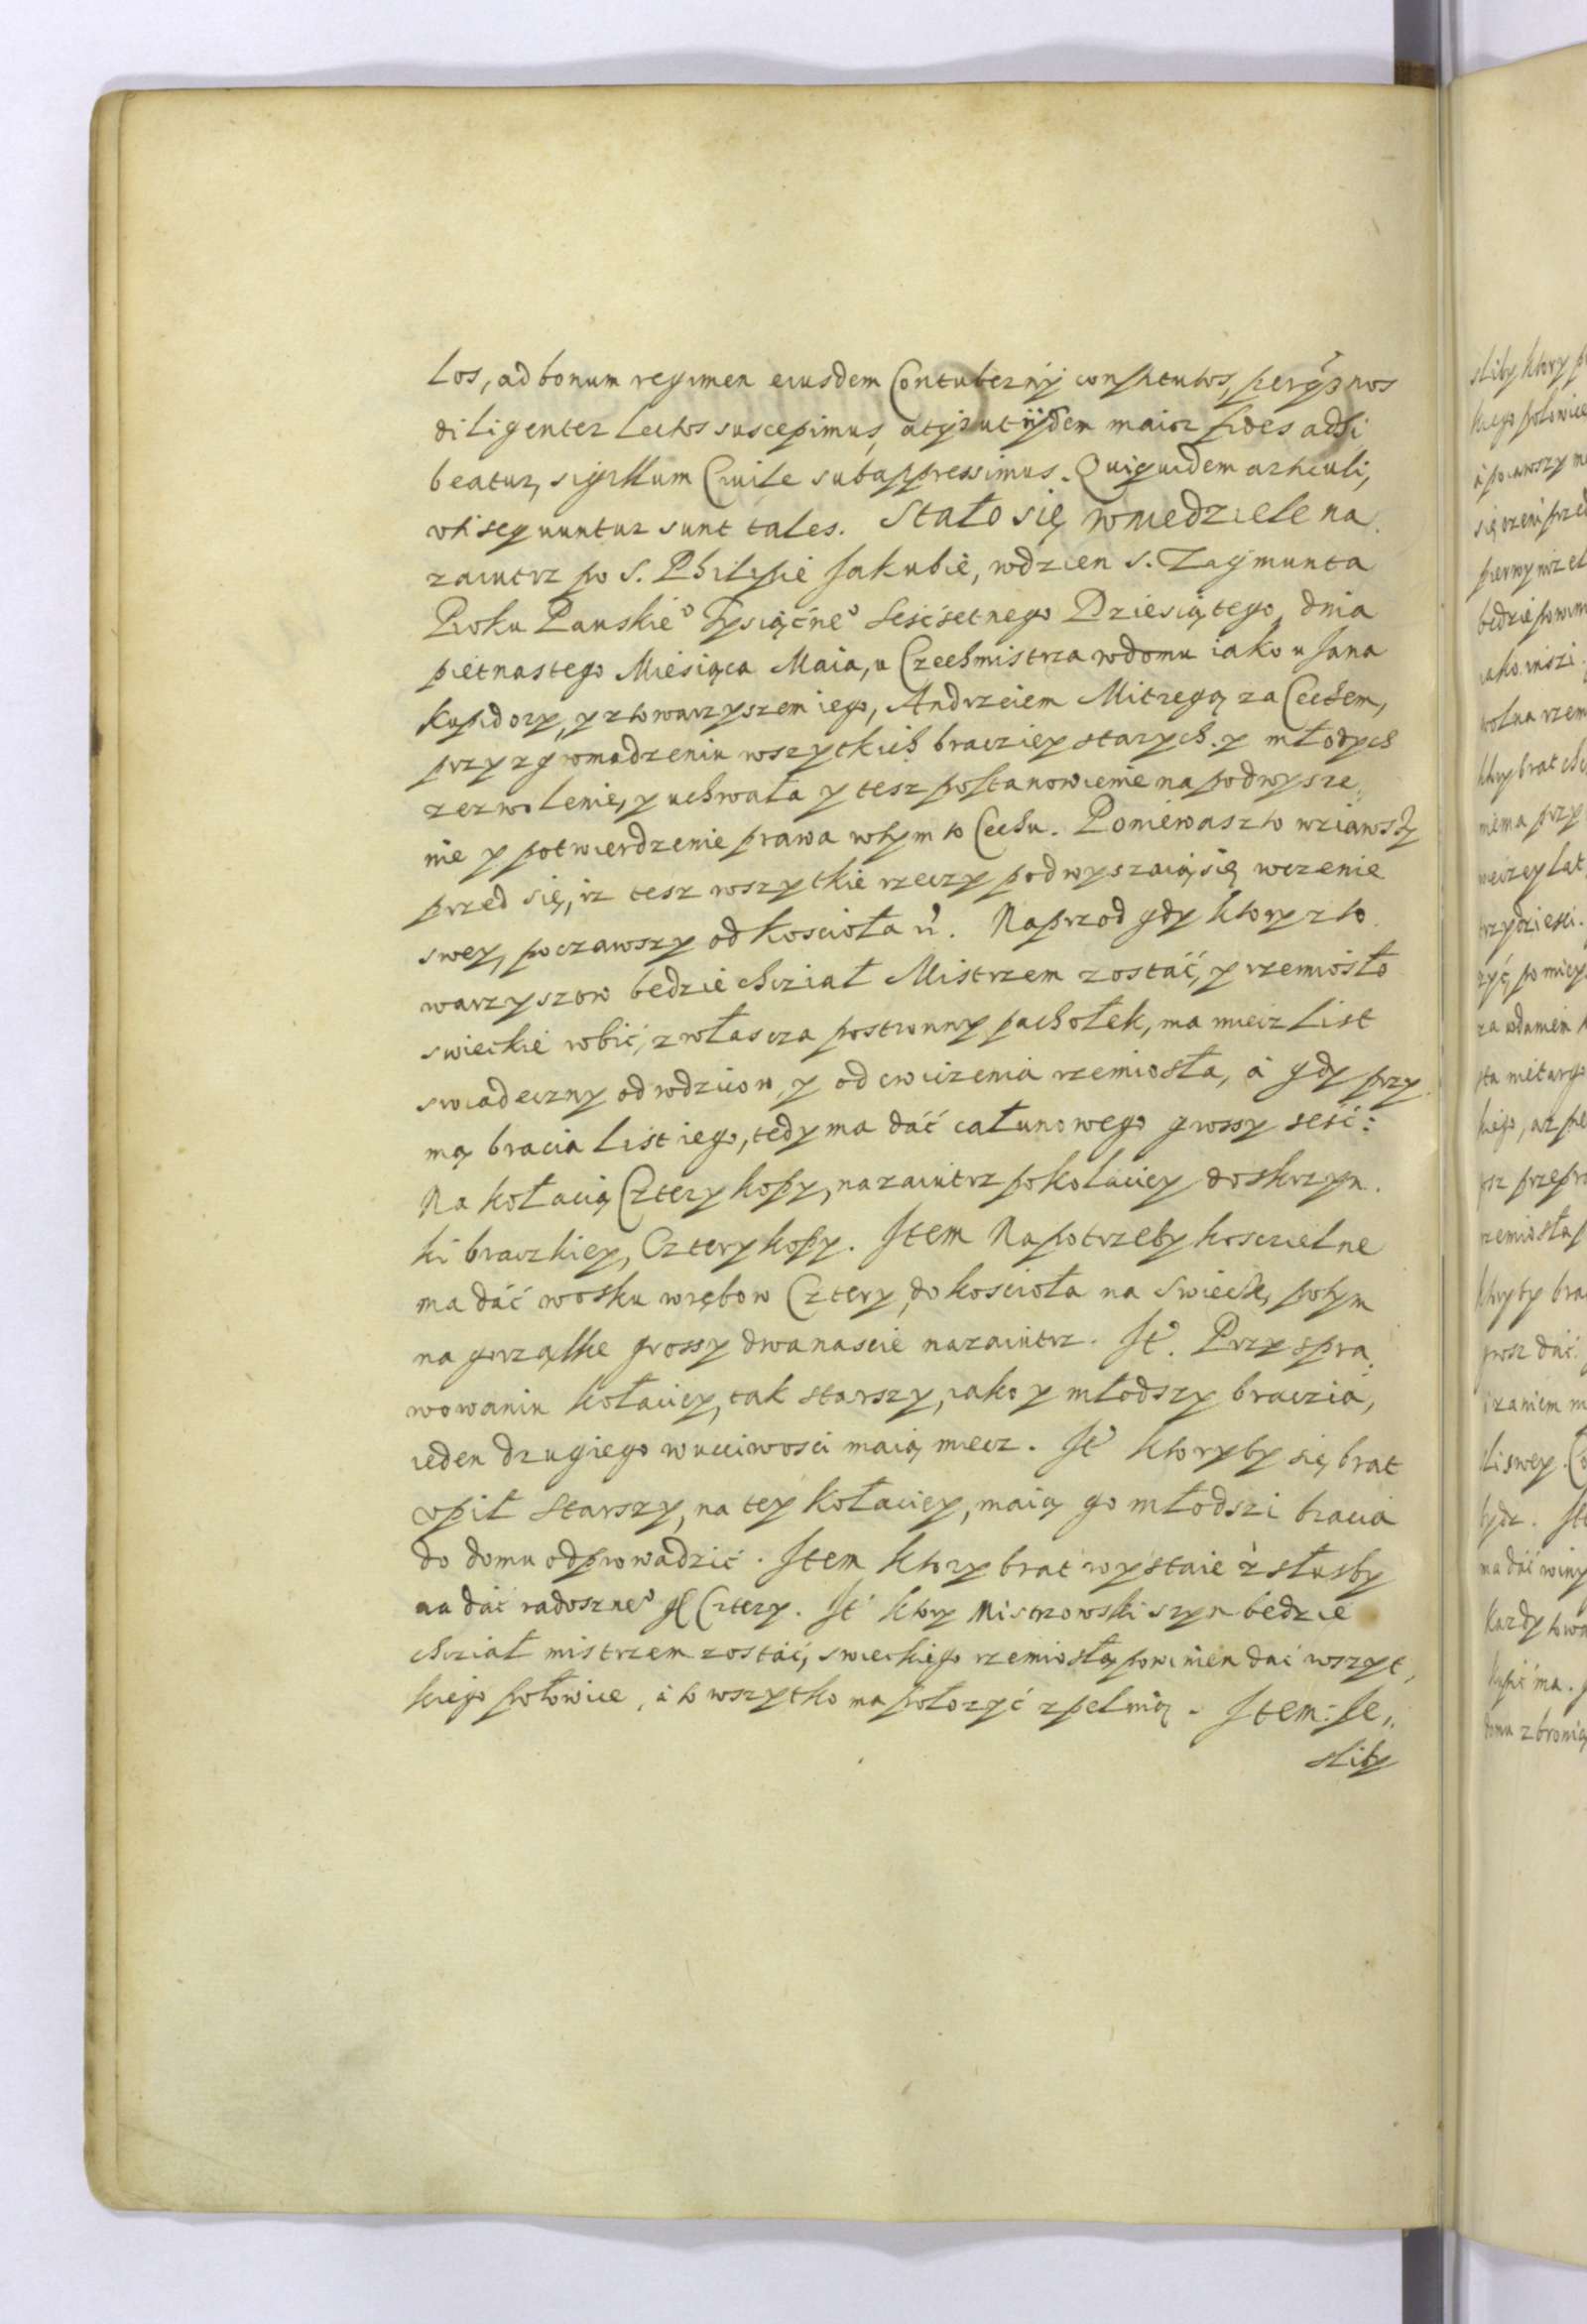 los, ad bonum regimen eiusdem Contubernÿ constitutos, per nos
diligenter lectos suscepimus, atqȝ ut ijsdem maior fides adhi
beatur, sigillum Ciuile subappressimus. Qui quidem articuli,
vti sequuntur sunt tales. Stało się w niedziele na
zaiutrz po S. Philipie Jakubie, w dzien S. Zagmunta
Roku Panskie° Tysiącne° Sesćsetnego Dziesiątego, dnia
pietnastego Miesiąca Maia, u Czechmistrza w domu iako u Jana
Kupidory, y z towarzyszem iego, Andrzeiem Mitręgą za Cechem,
przy zgromadzeniu wszytkich bracziey starych y młodych
zezwolenie, y uchwała y tesz postanowienie na podwysze,,
nie y potwierdzenie prawa w tym to Cechu. Poniewasz to wziąwszy
przed się, iz tesz wszytkie rzeczy podwyszaią się w czenie
swey, począwszy od koscioła
Naprzod gdy ktory z to
warzyszow bedzie chciał Mistrzem zostać, y rzemiosło
swieckie robić, zwłascza postronny pachołek, ma miecz list
swiadeczny od rodziców, y od cwiczenia rzemiosła, á gdy przy
mą bracia list iego, tedy ma dáć całunowego grossy sesć:
Na kołacią Cztery kopy, nazaiutrz po kolaciey do skrzyn
ki braczkiey, Cztery kopy. Item Na potrzeby kosczielne
ma dáć wosku wrębow Cztery, do kosciola na swiece, potym
na gorzałke grossy dwanascie nazaiutrz. It°. Przy spra
wowaniu kołaciey, tak starszy, iako y młodszy braczia,
ieden drugiego w ucciwosci maią miecz. It° ktoryby się brat
opił starszy, na tey kołaciey, maią go młodszi bracia
do domu odprowadzić. Item ktory brat wystaie z słusby
ma dáć radoszne° gr Cztery. It° ktory Mistrzowski szyn bedzie
chciał mistrzem zostać, swieckiego rzemiosła, powinien dać wszyt,
kiego połowice, á to wszytko ma położyć z pełnią. Item: Je,,
sliby